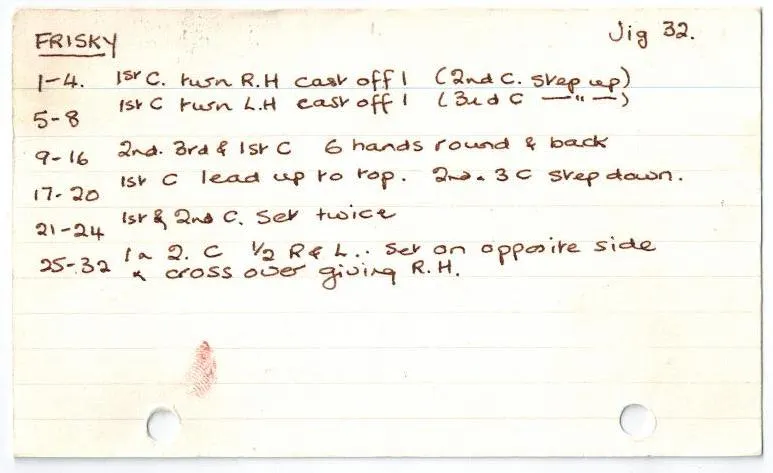 FRISKY
Jig 32.
1-4. 1st C. turn R.H cast off 1 (2nd C. step up)
5-8 1st C turn L.H cast off 1 (3rd C —"—)
9-16 2nd. 3rd & 1st C 6 hands round & back
17-20 1st C lead up to top. 2nd & 3 C step down.
21-24 1st & 2nd C. Set twice
25-32 1 & 2. C 1/2 R & L.. Set on opposite side
& cross over giving R.H.